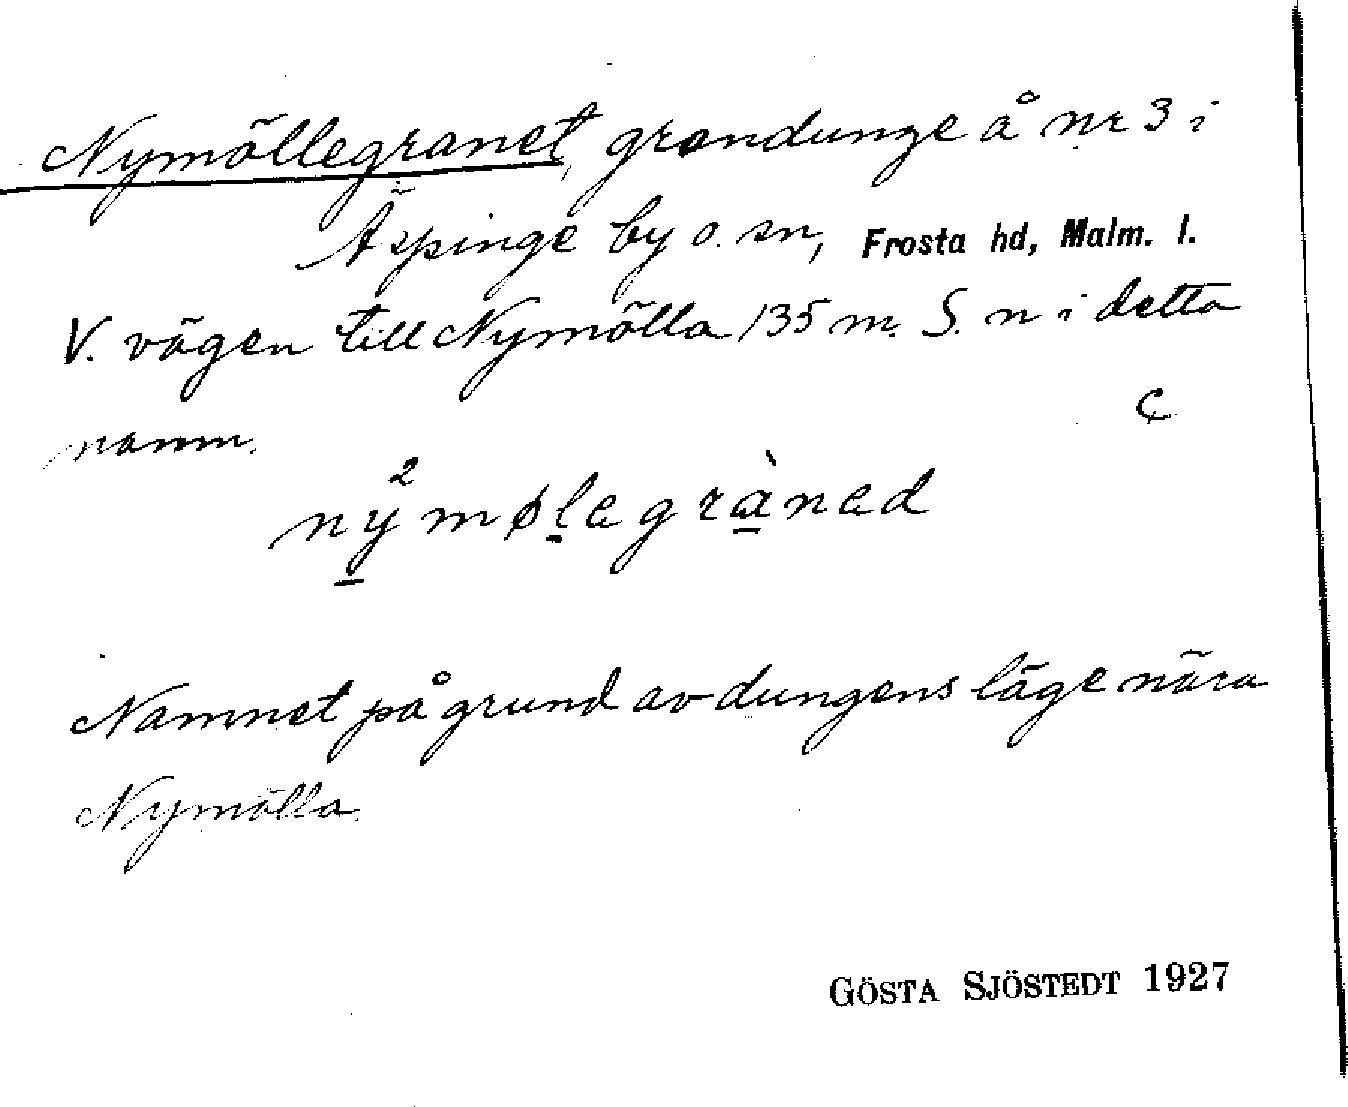 Nymöllegranet, grandunge å nr 3 i
Äspinge by o. sn, Frosta hd, Malm. l.
V. vägen till Nymölla 135 m. S. n i detta
namn.
C
2
nymølegràned
Namnet på grund av dungens läge nära
Nymölla.
GÖSTA SJÖSTEDT 1927